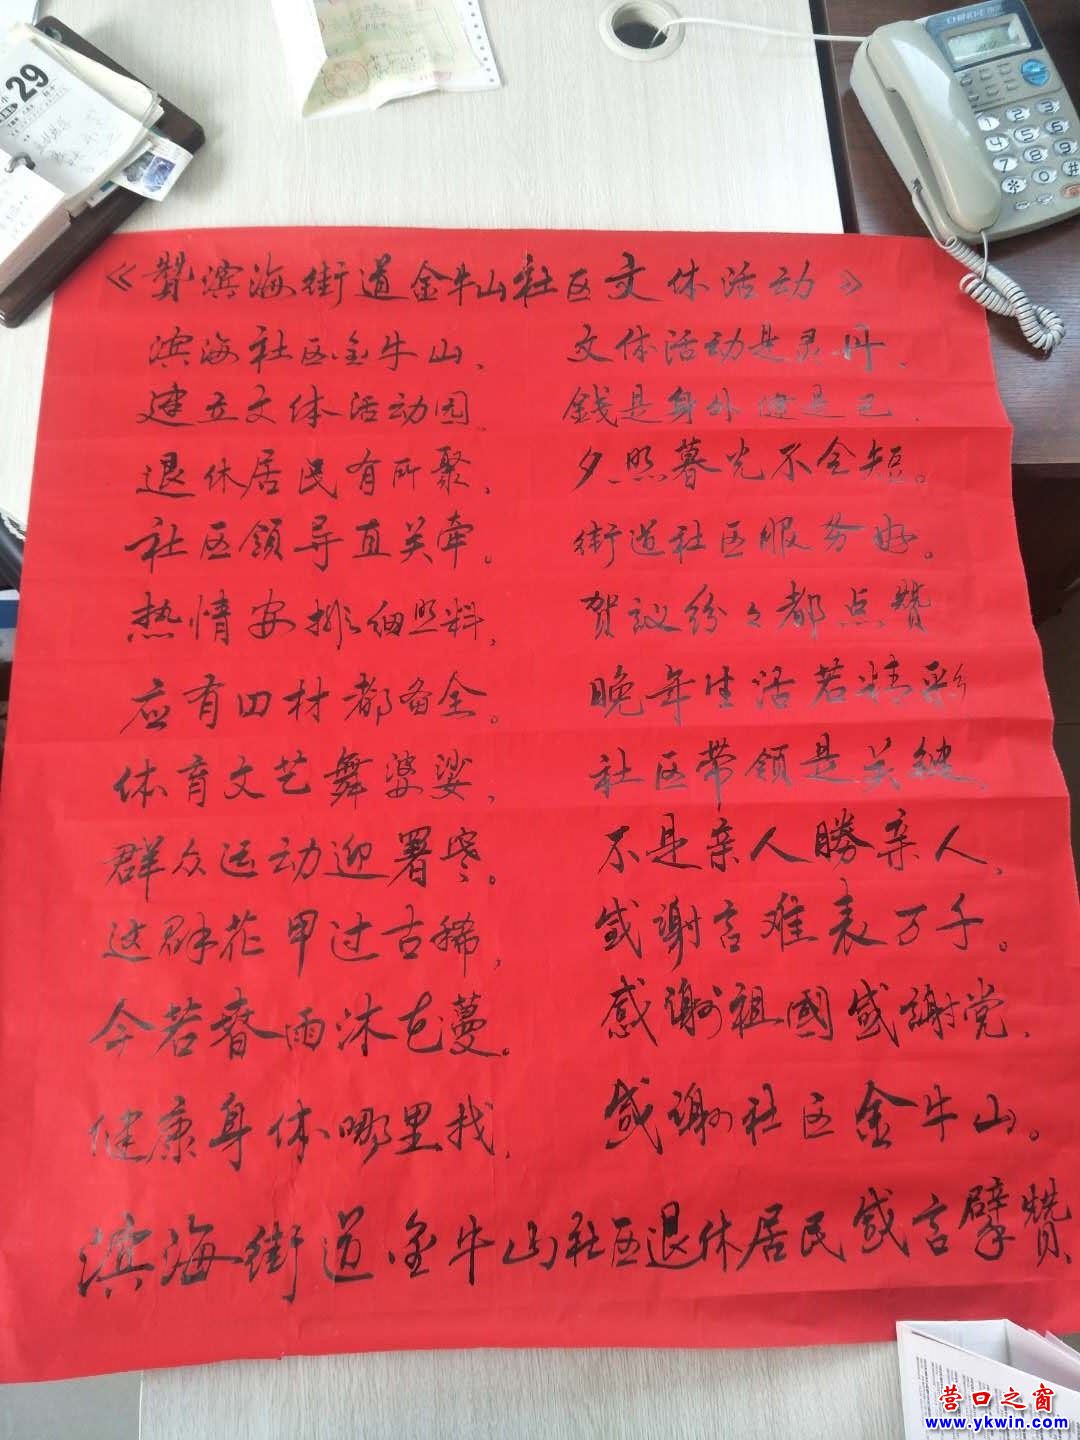 29
CHINO-E
1 2 3
4 5 6
7 8 9
* 0 #
《賛滨海街道金牛山社区文体活动》
滨海社区金牛山、
建立文体活动园、
退休居民有所聚、
社区領导直关牵。
热情安排细照料，
应有四材都备全。
体育文艺舞婆娑，
群众运动迎署寒。
这群花甲过古稀，
今若春雨沐花蔓。
健康身体哪里找，
文体活动是灵丹、
錢是身外健是己、
夕照暮光不会短。
街道社区服务好。
贺議纷々都点赞
晚年生活若精彩
社区带领是关键、
不是亲人勝亲人、
感謝言难表万千。
感謝祖國感謝党、
感謝社区金牛山。
滨海街道金牛山社区退休居民感言擘賛
营口之窗
www.ykwin.com